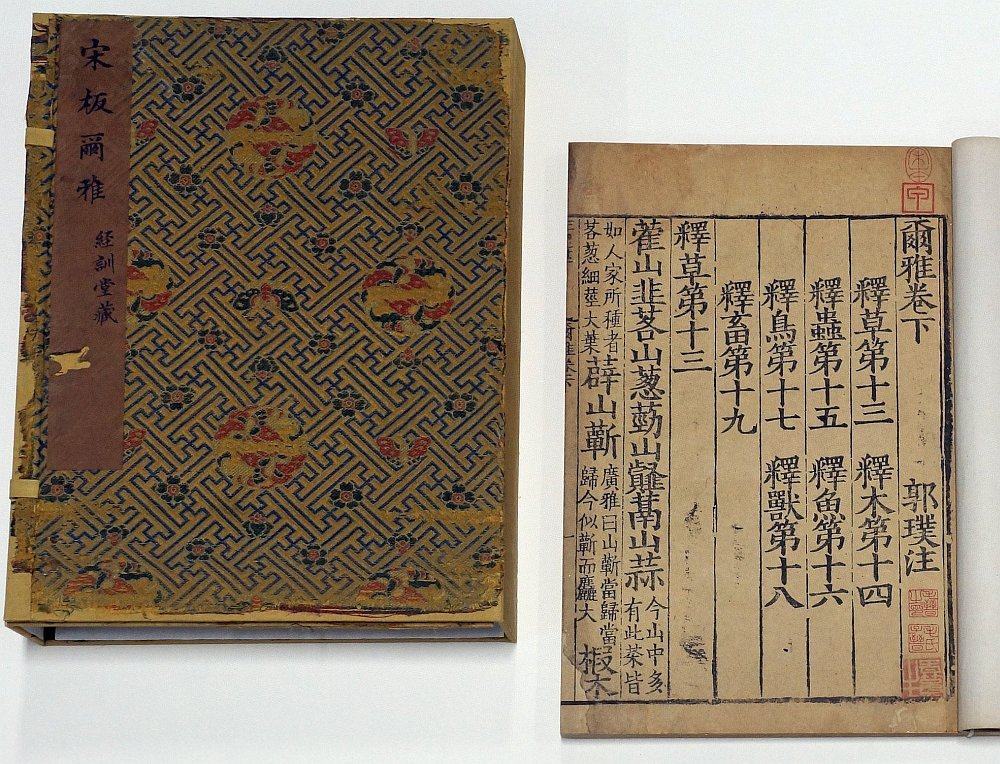 宋板爾雅
経訓堂藏
爾雅卷下 郭璞注
釋草第十三 釋木第十四
釋蟲第十五 釋魚第十六
釋鳥第十七 釋獸第十八
釋畜第十九
釋草第十三
藿山韭茖山葱葝山䪥蒚山蒜 今山中多有此菜皆
如人家所種者茖葱細莖大葉 薜山蘄 廣雅曰山蘄當歸當歸今似蘄而麤大 椴木